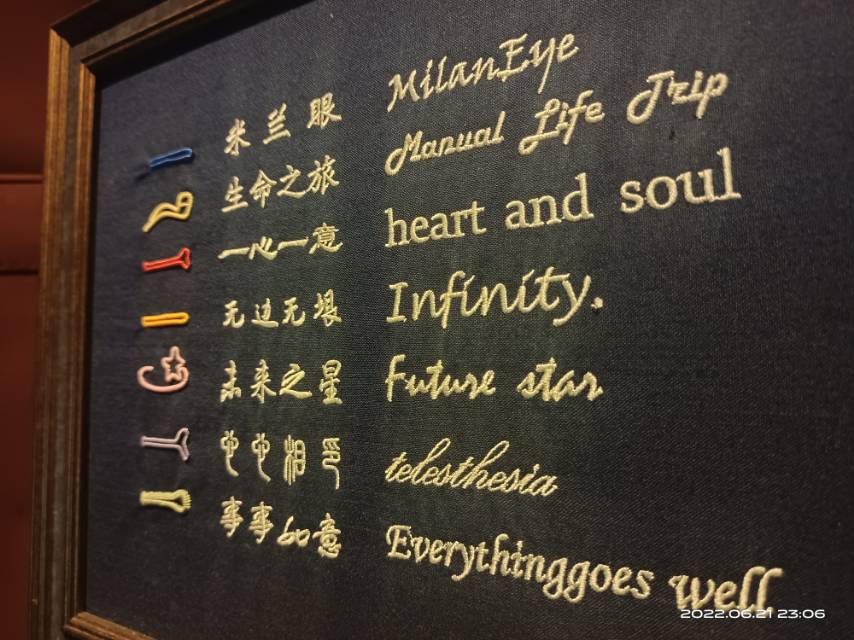 米兰眼 MilanEye
生命之旅 Manual Life Trip
一心一意 heart and soul
无过无垠 Infinity.
未来之星 Future star
心心相印 telesthesia
事事如意 Everythinggoes well
2022.06.21 23:06